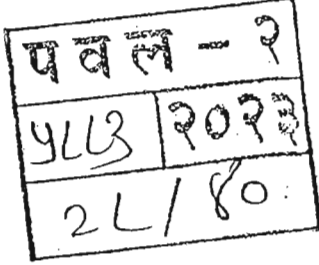 पवल - २
५८८३ २०२३
२८/४०